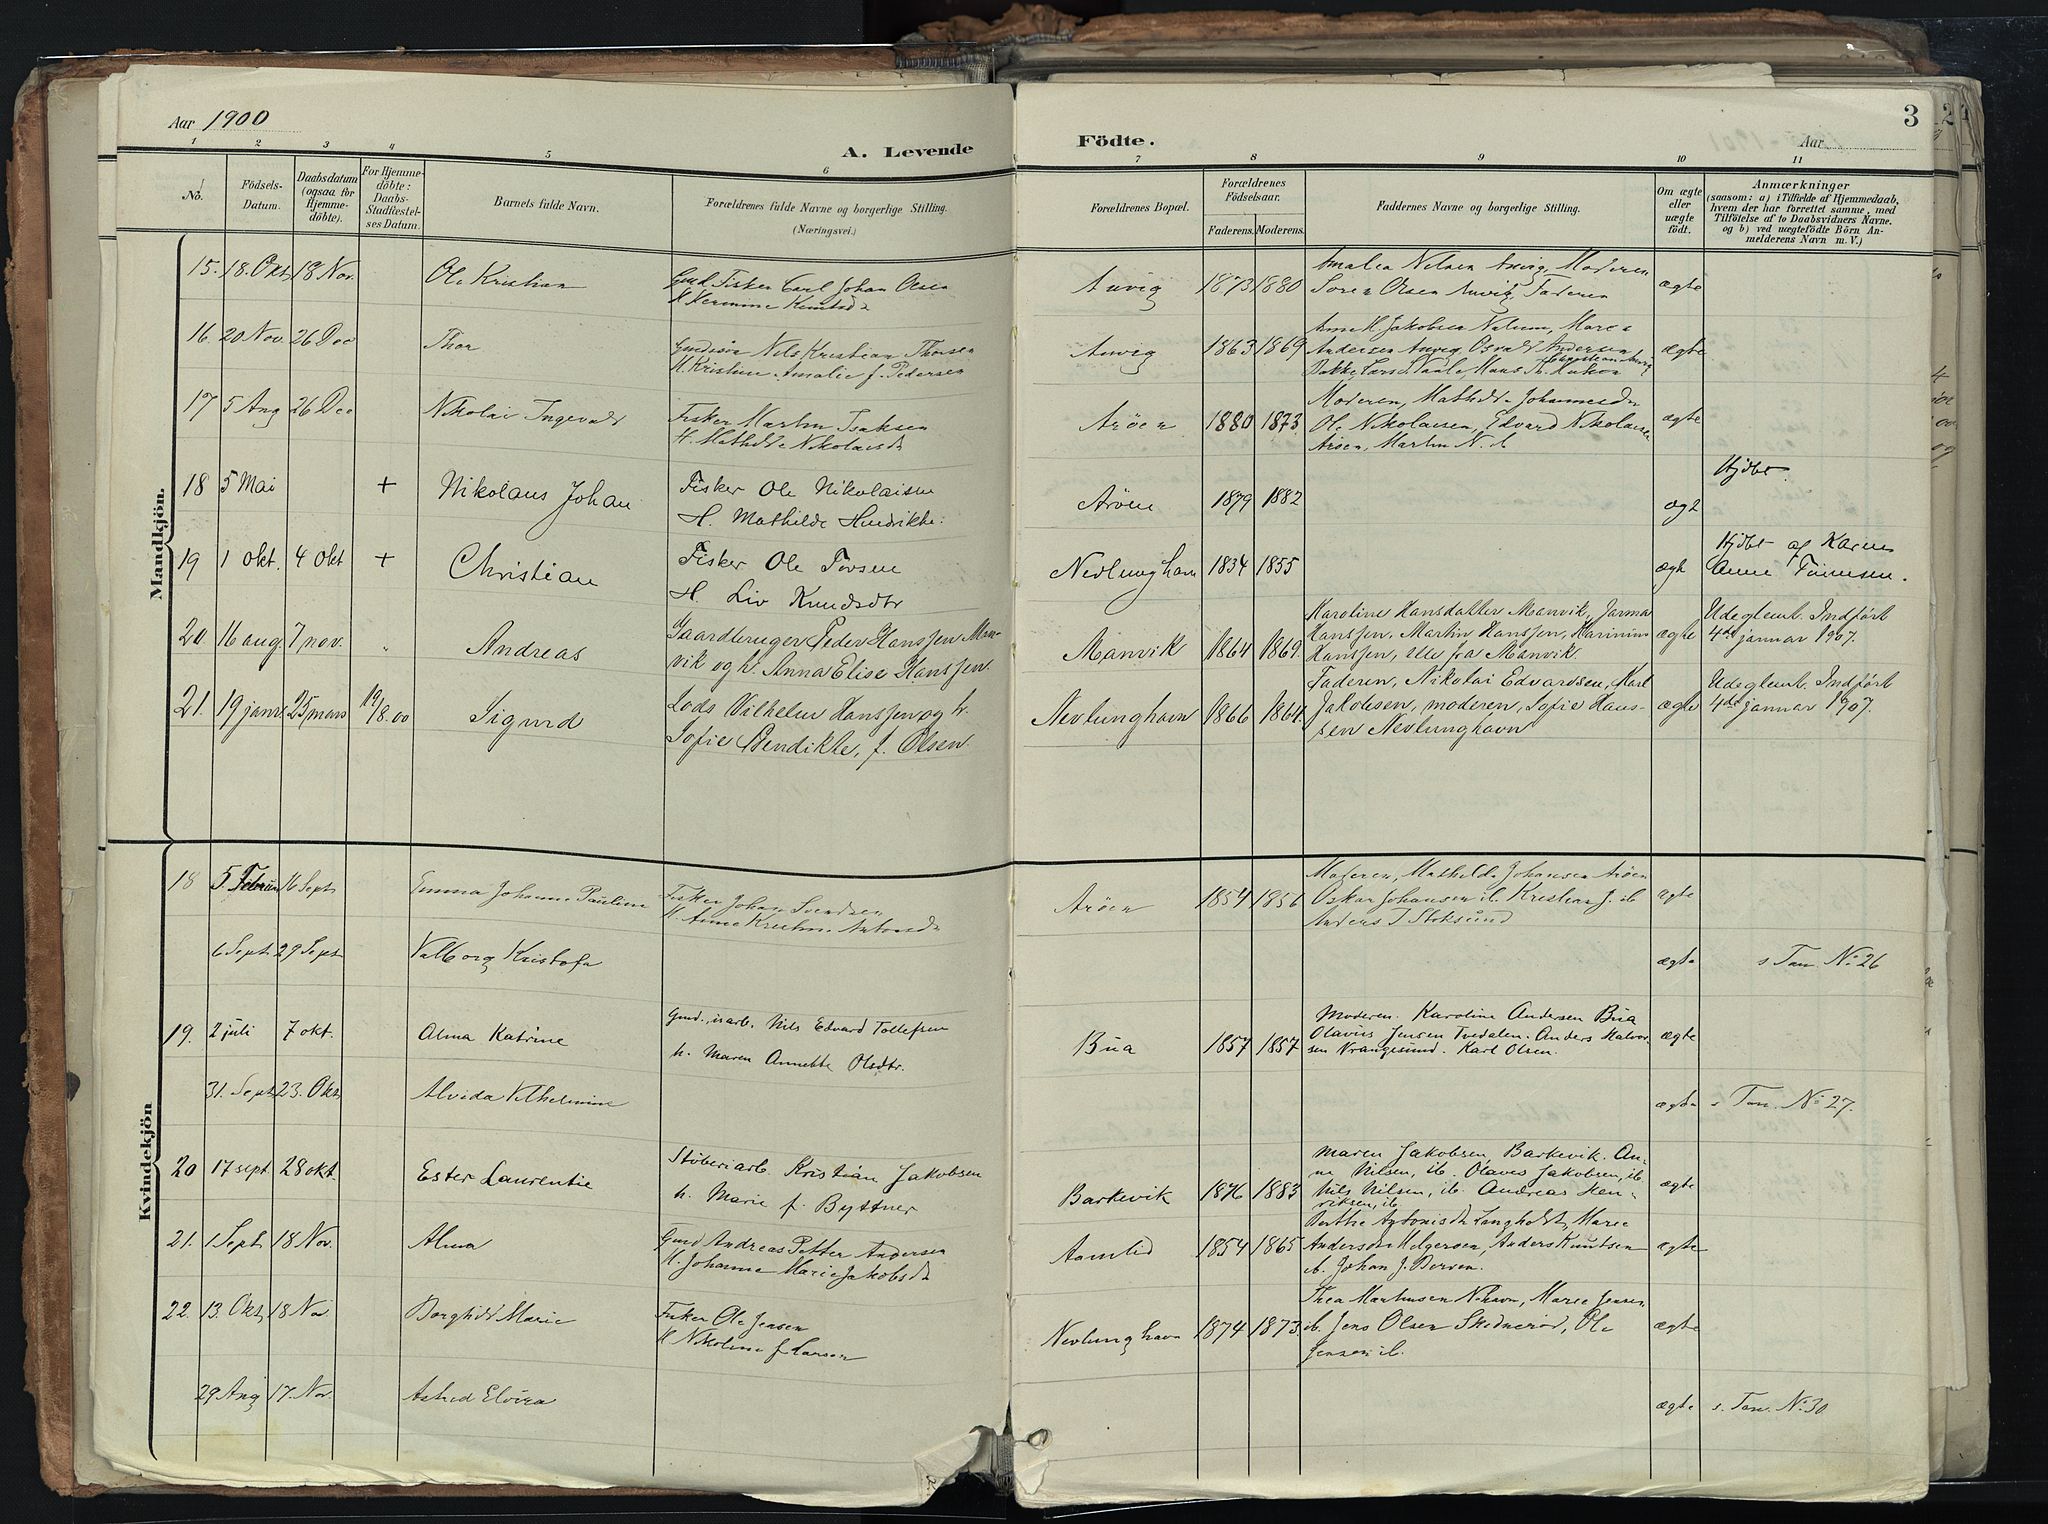 Aar 1900
A. Levende
Födte.
Aar
3
1 2 3 4 5 6 7 8 9 10 11
No.
Födsels-Datum.
Daabsdatum (ogsaa for Hjemmedöbte).
For Hjemmedöbte: Daabs-Stadfæstelses Datum.
Barnets fulde Navn.
Forældrenes fulde Navne og borgerlige Stilling.
(Næringsvei.)
Forældrenes Bopæl.
Forældrenes Födselsaar.
Faderens. Moderens.
Faddernes Navne og borgerlige Stilling.
Om ægte eller uægte födt.
Anmærkninger
(saasom: a) i Tilfælde af Hjemmedaab,
hvem der har forrettet samme, med
Tilföielse af to Daabsvidners Navne.
og b) ved uægtefödte Börn Anmelderens Navn m. V.)
Mandkjön.
15. 18. Okt 18 Nov. Ole Kristian Gmd Fisker Carl Johan Olsen
Anvig 1873 1880 Amalia Nilsen Anvig, Moderen
Soren Olsen Anvik, Faderen ægte
16. 20 Nov. 26 Dec Thor Nils Kristian Thorsen
H. Kristine Amalie f. Pedersen
Anvig 1863 1869 Anne M. Jakobsen Nalum, Marie
Andersen Anvig Osvald Andersen
ægte
17 5 Aug 26 Dec Nikolai Ingevald Fisker Martin Isaksen
H. Mathilde Nikolaisdr
Aröen 1880 1873. Moderen, Mathilde Johannesdr
Ole Nikolaisen, Edvard Nikolaisen
Martin N. ib ægte
18 5 Mai + Nikolaus Johan Fisker Ole Nikolaisen
H. Mathilde Hendrikke:
Aröen 1879 1882 ægt Hjdbt.
19 1 Okt. 4 Okt + Christian Fisker Ole Torsen
H. Liv Knudsdtr
Nevlunghavn 1834 1855 ægte Hjdbt af Karen
Anne Tönnesen.
20 16 aug. 7 nov. " Andreas Gaardbruger Peder Hanssen Man-
vik og h. Anna Elise Hanssen
Manvik 1864 1869. Karoline Hansdatter Manvik,
Hanssen, Martin Hanssen,
Hanssen, alle fra Manvik. ægte Udeglemt. Indført
4de januar 1907.
21. 19 janr 25/mars 19/8.00 Sigurd Lods Vilhelm Hanssen og h.
Sofie Bendikte, f. Olsen.
Nevlunghavn 1866 1864. Faderen, Nikolai Edvardsen, Karl
Jakobsen, moderen, Sofie Hans-
sen Nevlunghavn ægte Udeglemt. Indført
4de januar 1907.
Kvindekjön
18 5 Februar 16 Sept Emma Johanne Pauline Fisker Johan Svendsen
H. Anne Kristine Antonsdr
Aröen 1854 1856 Moderen, Mathilde Johansen Aröen
Oskar Johansen ib. Kristian J. ib
Anders J Stoksund ægte
6 Sept 29 Sept Valborg Kristofa ægte s Tan. No 26
19. 2 juli 7 okt. Alma Katrine Gmd., isarb. Nils Edvard Tollefsen
h. Maren Annette Olsdtr.
Bua 1857 1857 Moderen. Karoline Andersen Bua
Olavus Jensen Tvedalen. Anders Halvor-
sen Vrangesund. Karl Olsen. ægte
31. Sept 23. Okt Alvida Vilhelmine ægte s Tan. No 27.
20 17 sept. 28 okt. Ester Laurentie Støberiarb. Kristian Jakobsen
h. Marie f. Byttner
Barkevik 1876 1883 Maren Jakobsen, Barkevik. An-
na Nilsen, ib. Olaves Jakobsen, ib.
Nils Nilsen, ib. Andreas Hen-
riksen, ib. ægte
21. 1 Sept 18 Nov. Alma Gmd Andreas Petter Andersen
H. Johanne Marie Jakobsdr
Aamlid 1854 1865 Berthe Antonisdr Langholt, Marie
Anderson Helgersen, Anders Knutsen
ib. Johan J. Berven. ægte
22. 13. Okt 18 Nov. Borghild Marie Fisker Ole Jensen
H Nikoline f Larsen
Nevlunghavn 1874 1873 Thea Marthinsen N.havn, Marie Jensen
ib. Jens Olsen Skidneröd, Ole
Jensen ib. ægte
29 Aug 17. Nov. Astrid Elvira ægte s. Tan. No 30